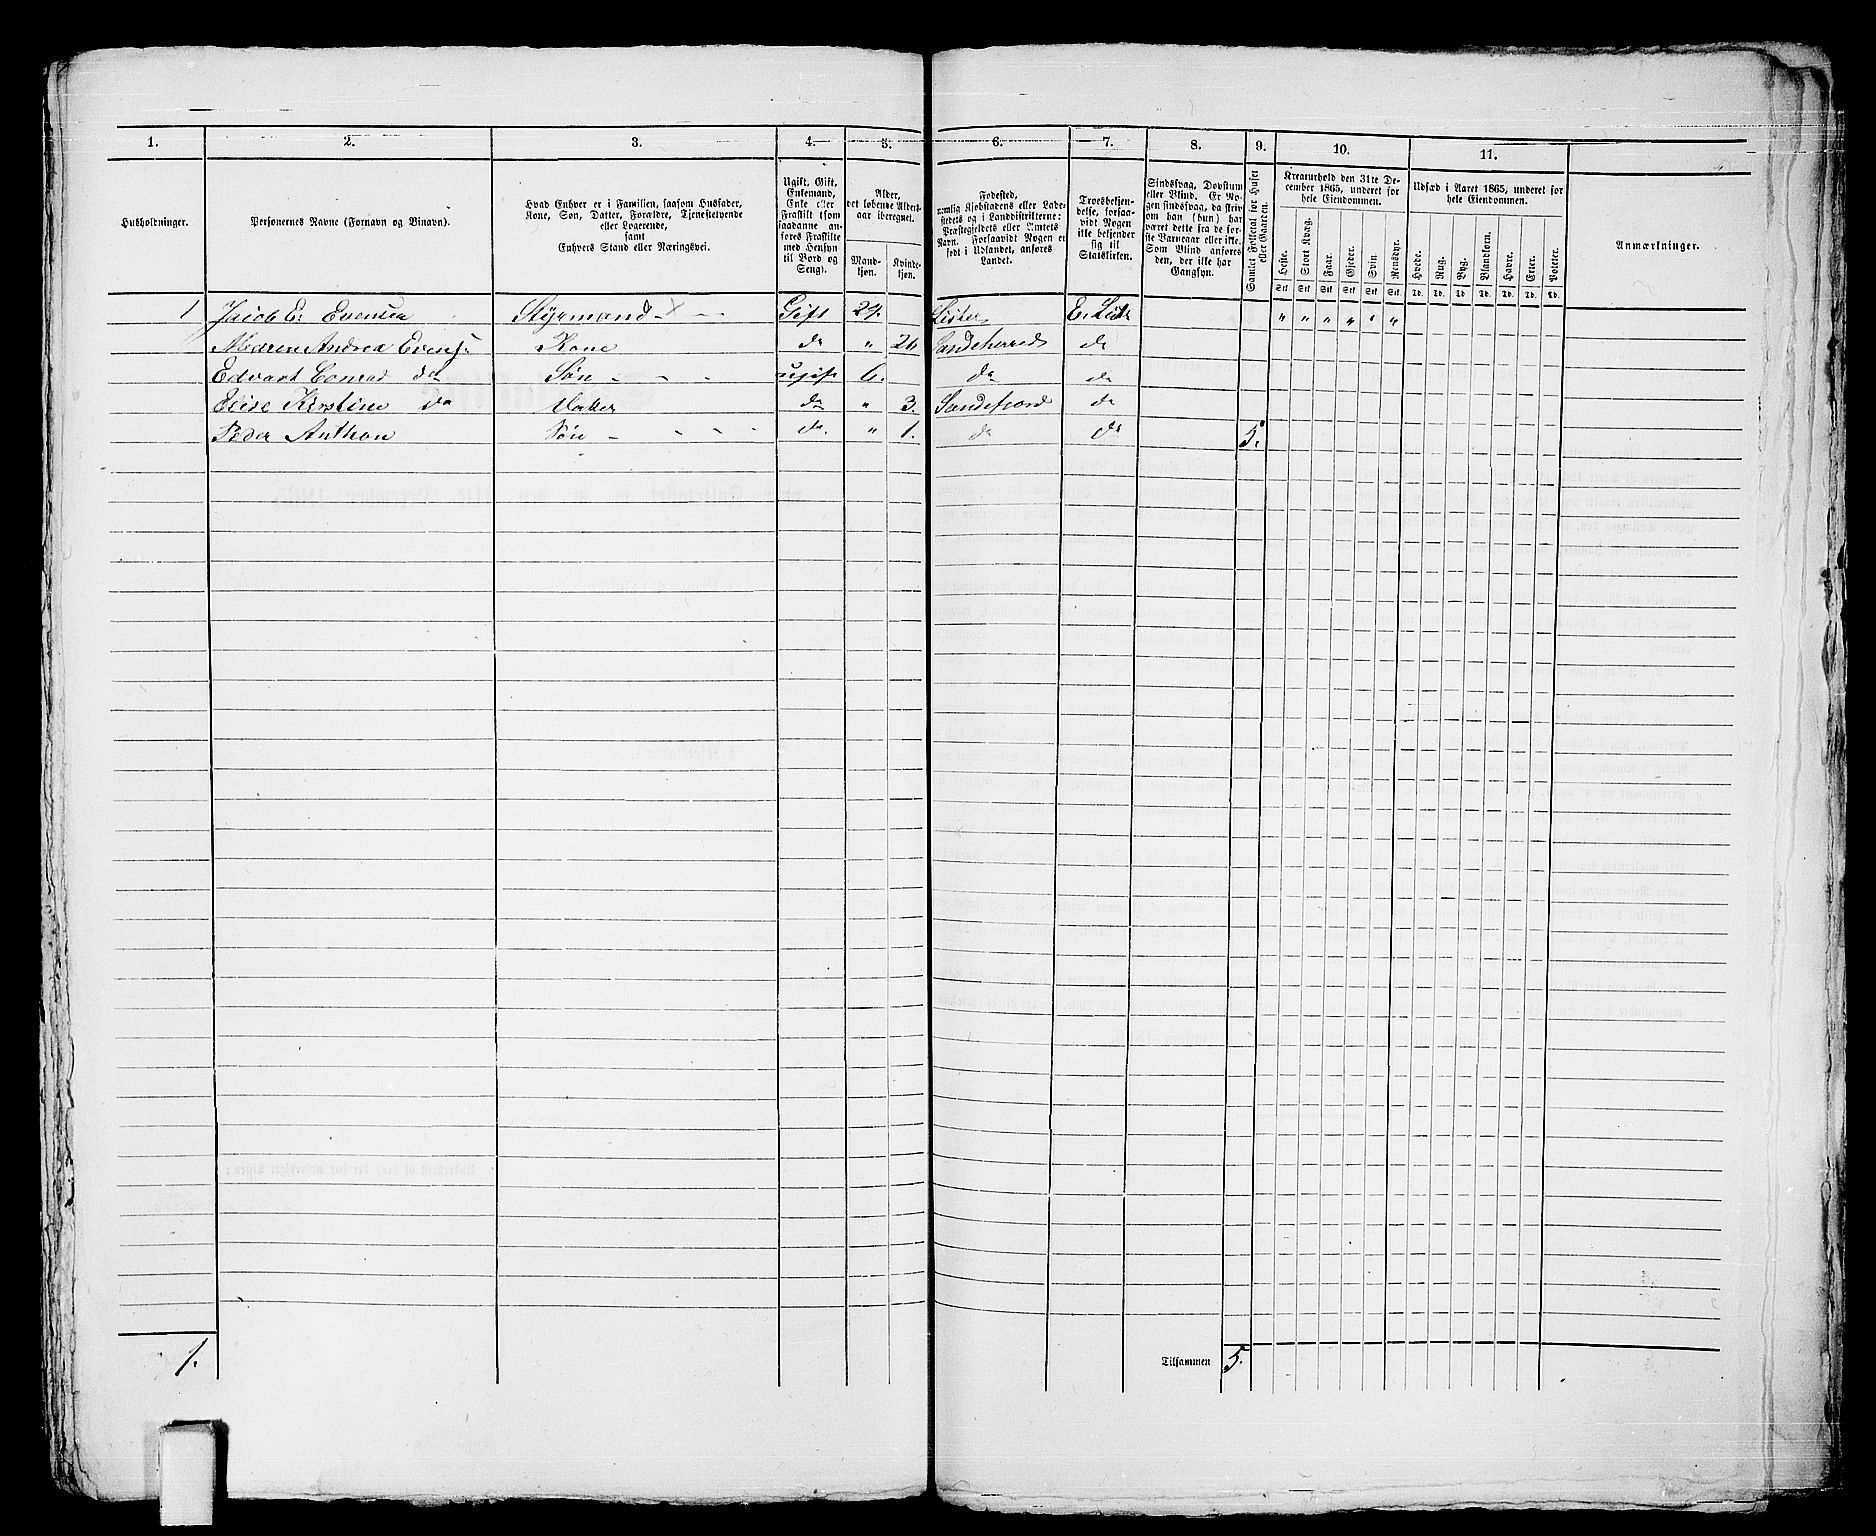 1. 2. 3. 4. 5. 6. 7. 8. 9. 10. 11.
Husholdninger.
Personernes Navne (Fornavn og Binavn).
Hvad Enhver er i Familien, saasom Husfader,
Kone, Søn, Datter, Forældre, Tjenestetyende
eller Logerende,
samt
Enhvers Stand eller Næringsvei.
Ugift, Gift,
Enkemand,
Enke eller
Fraskilt (som
saadanne an-
føres Fraskilte
med Hensyn
til Bord og
Seng).
Alder,
det løbende Alders-
aar iberegnet.
Mand-
kjøn.
Kvinde-
kjøn.
Fødested,
nemlig Kjøbstadens eller Lade-
stedets og i Landdistrikterne:
Præstegjeldets eller Amtets
Navn. Forsaavidt Nogen er
født i Udlandet, anføres
Landet.
Troesbekjen-
delse, forsaa-
vidt Nogen
ikke bekjender
sig til
Statskirken.
Sindssvag, Døvstum
eller Blind. Er No-
gen sindssvag, da skriv
om han (hun) har
været dette fra de før-
ste Barneaar eller ikke.
Som Blind anføres
den, der ikke har
Gangsyn.
Samlet Folketal for Huset
eller Gaarden.
Kreaturhold den 31te De-
cember 1865, underet for
hele Eiendommen.
Heste. Stort Kvæg. Faar. Gjeder. Svin. Rensdyr.
Stk Stk Stk Stk Stk Stk
Udsæd i Aaret 1865, underet for
hele Eiendommen.
Hvede. Rug. Byg. Blandkorn. Havre. Erter. Poteter.
Td. Td. Td Td. Td. Td. Td.
Anmærkninger.
1 Jacob E: Evensen Styrmand Gift 29. Lister E. Luth " " " " " "
Maren Andrea Evens: Kone do " 26 Sandeherred do
Edvart Conrad do Søn ugift 6. do do
Elise Kirstine do Datter do " 3. Sandefjord do
Peder Anthon Søn do. " 1. do do 5.
1. Tilsammen 5.